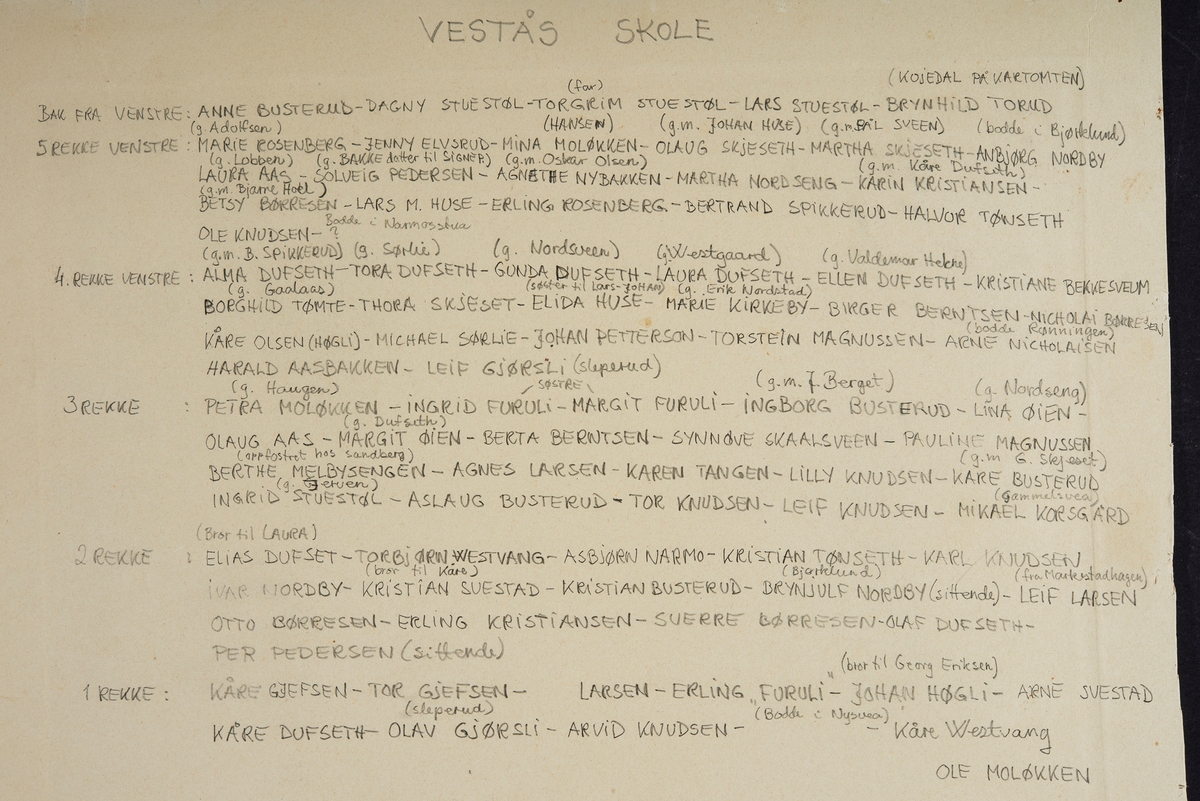 VESTÅS SKOLE
(far) (KOJEDAL PÅ KARTOMTEN)
BAK FRA VENSTRE: ANNE BUSTERUD-DAGNY STUESTØL-TORGRIM STUESTØL-LARS STUESTØL-BRYNHILD TORUD
(g. Adolfsen) (HANSEN) (g.m. JOHAN HUSE) (g.m. PÅL SVEEN) (bodde i Bjørkelund)
5 REKKE VENSTRE: MARIE ROSENBERG-JENNY ELVSRUD-MINA MOLØKKEN-OLAUG SKJESETH-MARTHA SKJESETH-ANBJØRG NORDBY
(g. Lobben) (g. BAKKE dotter til SIGNER) (g.m. Oskar Olsen) (g.m. Kåre Dufseth)
LAURA AAS - SOLVEIG PEDERSEN - AGNETHE NYBAKKEN-MARTHA NORDSENG-KARIN KRISTIANSEN-
(g.m. Bjarne Hoel)
BETSY BØRRESEN-LARS M. HUSE-ERLING ROSENBERG-BERTRAND SPIKKERUD-HALVOR TØNSETH
Bodde i Narmosstua
OLE KNUDSEN-?
(g.m. B. SPIKKERUD) (g. Sørlie) (g. Nordsveen) (g. Westgaard) (g. Valdemar Hekne)
4. REKKE VENSTRE: ALMA DUFSETH-TORA DUFSETH-GUNDA DUFSETH-LAURA DUFSETH-ELLEN DUFSETH-KRISTIANE BEKKESVEUM
(g. Gaalaas) (søster til Lars-JOHAN) (g. Erik Nordstad)
BORGHILD TØMTE-THORA SKJESET-ELIDA HUSE-MARIE KIRKEBY-BIRGER BERNTSEN-NICHOLAI BØRRESEN
(bodde Rønningen)
KÅRE OLSEN (HØGLI)-MICHAEL SØRLIE-JOHAN PETTERSON-TORSTEIN MAGNUSSEN-ARNE NICHOLAISEN
HARALD AASBAKKEN-LEIF GJØRSLI (sleperud)
(g. Haugen) SØSTRE (g.m. J. Berget) (g. Nordseng)
3 REKKE : PETRA MOLØKKEN-INGRID FURULI-MARGIT FURULI-INGBORG BUSTERUD-LINA ØIEN-
(g. Dufseth)
OLAUG AAS-MARGIT ØIEN-BERTA BERNTSEN-SYNNØVE SKAALSVEEN-PAULINE MAGNUSSEN
(oppfostret hos Sandberg) (g.m. G. Skjeset)
BERTHE MELBYSENGEN-AGNES LARSEN-KAREN TANGEN-LILLY KNUDSEN-KARE BUSTERUD
(g. Jerven) (Gammelsvea)
INGRID STUESTØL-ASLAUG BUSTERUD-TOR KNUDSEN-LEIF KNUDSEN-MIKAEL KORSGÅRD
(Bror til LAURA)
2 REKKE : ELIAS DUFSET-TORBJØRN WESTVANG-ASBJØRN NARMO-KRISTIAN TØNSETH-KARL KNUDSEN
(bror til Kåre) (Bjørklund) (fra Markestadhagen)
IVAR NORDBY-KRISTIAN SVESTAD-KRISTIAN BUSTERUD-BRYNJULF NORDBY (sittende)-LEIF LARSEN
OTTO BØRRESEN-ERLING KRISTIANSEN-SVERRE BØRRESEN-OLAF DUFSETH-
PER PEDERSEN (sittende)
(bror til Georg Eriksen)
1 REKKE : KÅRE GJEFSEN-TOR GJEFSEN- LARSEN-ERLING "FURULI"-JOHAN HØGLI-ARNE SVESTAD
(sleperud) (Bodde i Nysvea)
KÅRE DUFSETH-OLAV GJØRSLI-ARVID KNUDSEN- - Kåre Westvang
OLE MOLØKKEN